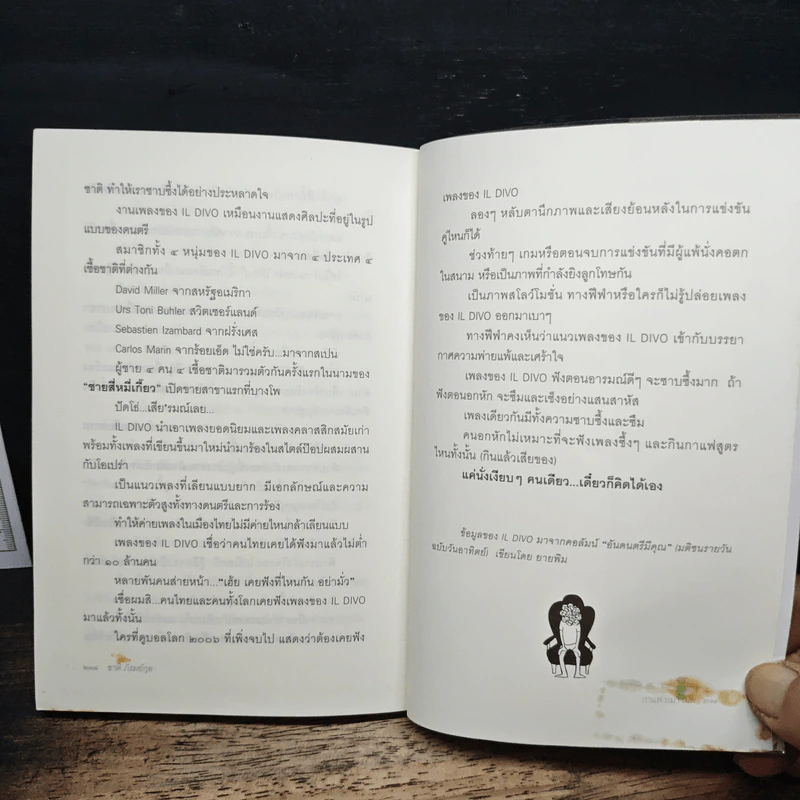 ชาติ ทำให้เราซาบซึ้งได้อย่างประหลาดใจ
งานเพลงของ IL DIVO เหมือนงานแสดงศิลปะที่อยู่ในรูป
แบบของดนตรี
สมาชิกทั้ง ๔ หนุ่มของ IL DIVO มาจาก ๔ ประเทศ ๔
เชื้อชาติที่ต่างกัน
David Miller จากสหรัฐอเมริกา
Urs Toni Buhler สวิตเซอร์แลนด์
Sebastien Izambard จากฝรั่งเศส
Carlos Marin จากร้อยเอ็ด ไม่ใช่ครับ...มาจากสเปน
ผู้ชาย ๔ คน ๔ เชื้อชาติมารวมตัวกันครั้งแรกในนามของ
"ชายสี่หมี่เกี๊ยว" เปิดขายสาขาแรกที่บางโพ
ปัดโธ่...เสีย'รมณ์เลย...
IL DIVO นำเอาเพลงยอดนิยมและเพลงคลาสสิกสมัยเก่า
พร้อมทั้งเพลงที่เขียนขึ้นมาใหม่นำมาร้องในสไตล์ป๊อปผสมผสาน
กับโอเปร่า
เป็นแนวเพลงที่เลียนแบบยาก มีเอกลักษณ์และความ
สามารถเฉพาะตัวสูงทั้งทางดนตรีและการร้อง
ทำให้ค่ายเพลงในเมืองไทยไม่มีค่ายไหนกล้าเลียนแบบ
เพลงของ IL DIVO เชื่อว่าคนไทยเคยได้ฟังมาแล้วไม่ต่ำ
กว่า ๑๐ ล้านคน
หลายพันคนส่ายหน้า..."เฮ้ย เคยฟังที่ไหนกัน อย่ามั่ว"
เชื่อผมสิ...คนไทยและคนทั้งโลกเคยฟังเพลงของ IL DIVO
มาแล้วทั้งนั้น
ใครที่ดูบอลโลก ๒๐๐๖ ที่เพิ่งจบไป แสดงว่าต้องเคยฟัง
ชาติ ภิรมย์กุล
เพลงของ IL DIVO
ลองๆ หลับตานึกภาพและเสียงย้อนหลังในการแข่งขัน
คู่ไหนก็ได้
ช่วงท้ายๆ เกมหรือตอนจบการแข่งขันที่มีผู้แพ้นั่งคอตก
ในสนาม หรือเป็นภาพที่กำลังยิงลูกโทษกัน
เป็นภาพสโลว์โมชั่น ทางฟีฟ่าหรือใครก็ไม่รู้ปล่อยเพลง
ของ IL DIVO ออกมาเบาๆ
ทางฟีฟ่าคงเห็นว่าแนวเพลงของ IL DIVO เข้ากับบรรยา
กาศความพ่ายแพ้และเศร้าใจ
เพลงของ IL DIVO ฟังตอนอารมณ์ดีๆ จะซาบซึ้งมาก ถ้า
ฟังตอนอกหัก จะซึมและเซ็งอย่างแสนสาหัส
เพลงเดียวกันมีทั้งความซาบซึ้งและซึม
คนอกหักไม่เหมาะที่จะฟังเพลงซึ้งๆ และกินกาแฟสูตร
ไหนทั้งนั้น (กินแล้วเสียของ)
แค่นั่งเงียบๆ คนเดียว...เดี๋ยวก็คิดได้เอง
ข้อมูลของ IL DIVO มาจากคอลัมน์ "อันดนตรีมีคุณ" (มติชนรายวัน
ฉบับวันอาทิตย์) เขียนโดย ยายพิม